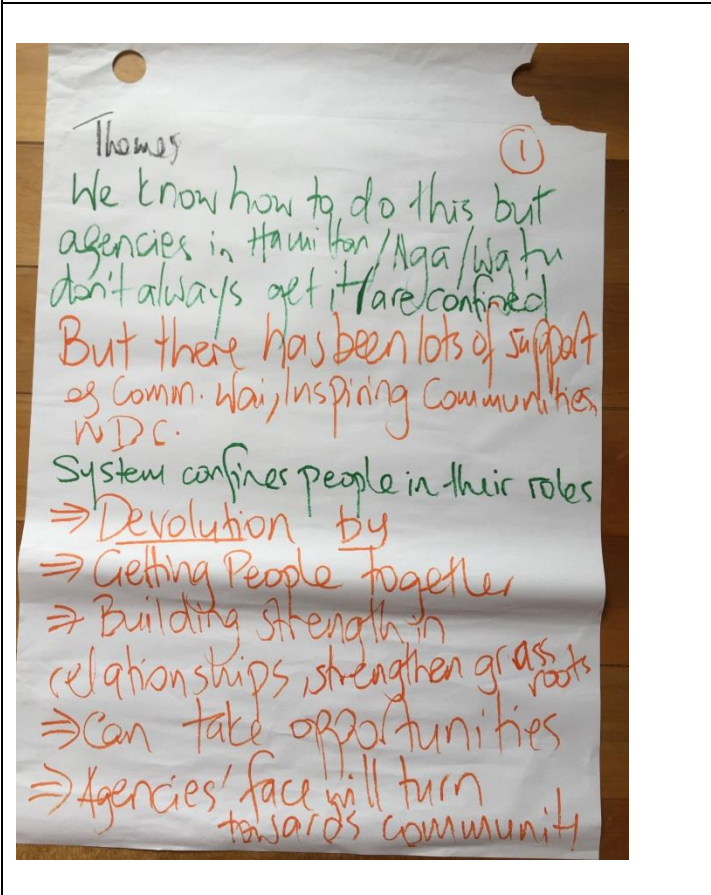 Themes
①
We know how to do this but
agencies in Hamilton/Nga/Watu
don't always get it/are confined
But there has been lots of support
eg Comm. Wai, Inspiring Communities,
WDC.
System confines people in their roles
⇒ Devolution by
⇒ Getting People together
⇒ Building strength in
relationships, strengthen grass
roots
⇒ Can take opportunities
⇒ Agencies' face will turn
towards community